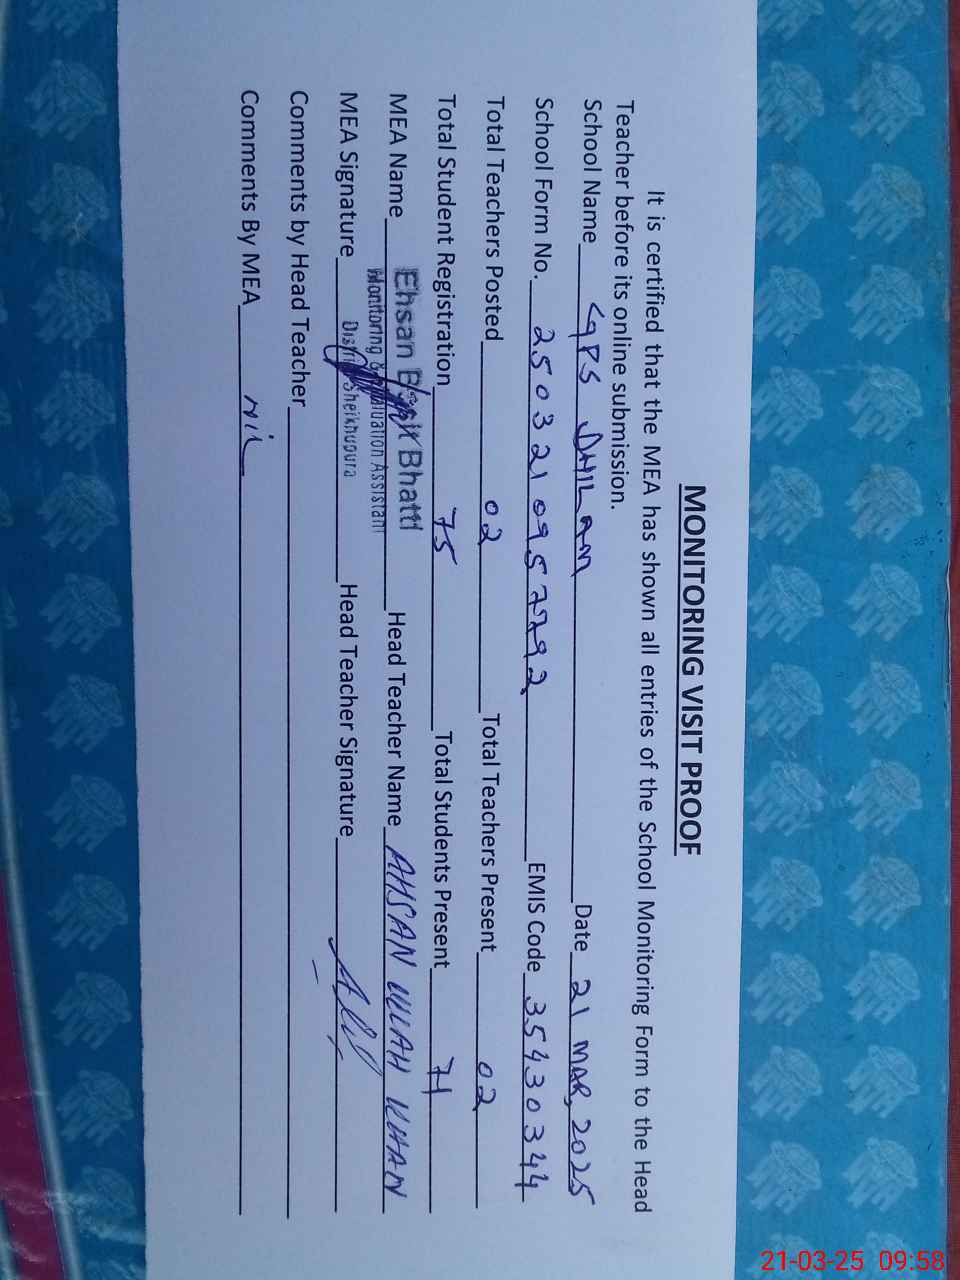 MONITORING VISIT PROOF
It is certified that the MEA has shown all entries of the School Monitoring Form to the Head
Teacher before its online submission.
School Name GPS DHILAM Date 21 MAR, 2025
School Form No. 2503210957792 EMIS Code 35430344
Total Teachers Posted 02 Total Teachers Present 02
Total Student Registration 75 Total Students Present 71
MEA Name Ehsan Bhatti Head Teacher Name AHSAN ULLAH KHAN
Monitoring & Evaluation Assistant
MEA Signature District Sheikhupura Head Teacher Signature
Comments by Head Teacher
Comments By MEA NIL
21-03-25 09:58